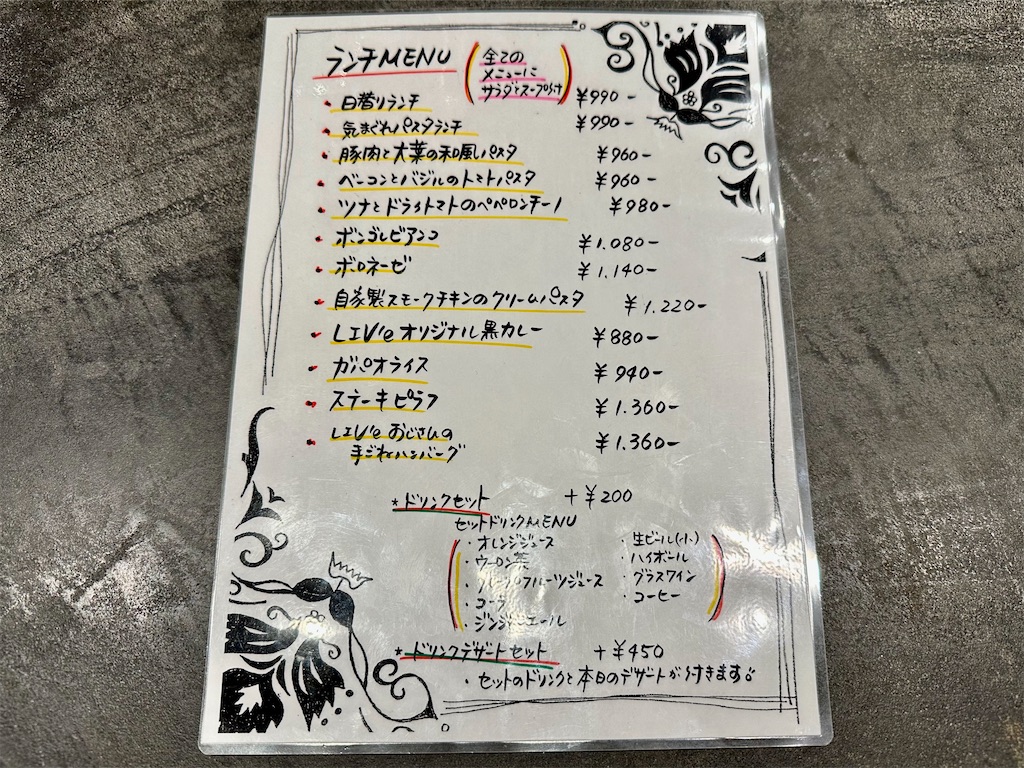 ランチMENU
全ての
メニューに
サラダとスープ付け
・日替りランチ ¥990-
・気まぐれパスタランチ ¥990-
・豚肉と大葉の和風パスタ ¥960-
・ベーコンとバジルのトマトパスタ ¥960-
・ツナとドライトマトのペペロンチーノ ¥980-
・ボンゴレビアンコ ¥1.080-
・ボロネーゼ ¥1.140-
・自家製スモークチキンのクリームパスタ ¥1.220-
・LIV'eオリジナル黒カレー ¥880-
・ガパオライス ¥940-
・ステーキピラフ ¥1.360-
・LIV'eおじさんの
手ごねハンバーグ ¥1.360-
*ドリンクセット +¥200
セットドリンクMENU
・オレンジジュース
・ウーロン茶
・グレープフルーツジュース
・コーラ
・ジンジャーエール
・生ビール(小)
・ハイボール
・グラスワイン
・コーヒー
*ドリンクデザートセット +¥450
・セットのドリンクと本日のデザートが付きます。